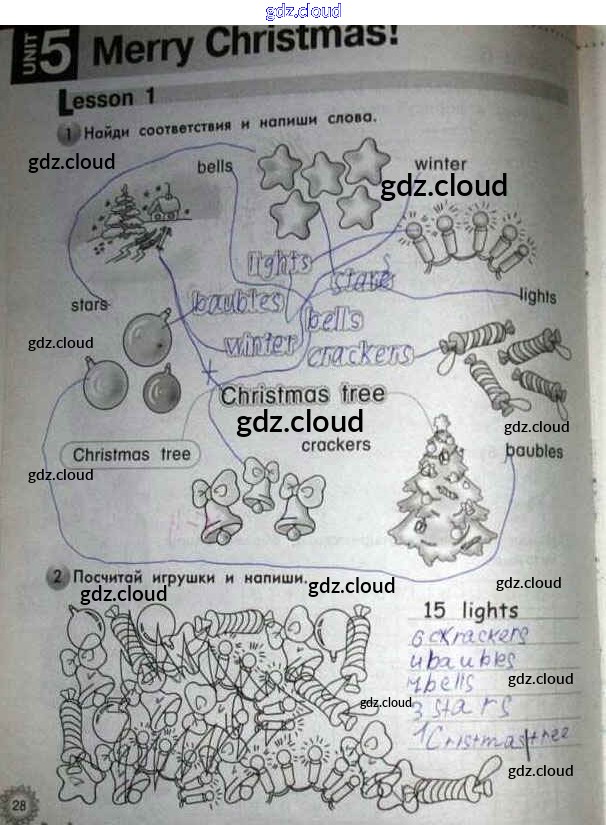 gdz.cloud
UNIT 5 Merry Christmas!
Lesson 1
1 Найди соответствия и напиши слова.
gdz.cloud
bells
winter
gdz.cloud
lights
stars
stars
baubles
bells
lights
gdz.cloud
winter
crackers
Christmas tree
gdz.cloud
gdz.cloud
Christmas tree
crackers
baubles
gdz.cloud
2 Посчитай игрушки и напиши.
gdz.cloud
gdz.cloud
gdz.cloud
15 lights
6 ckrackers
4 baubles
gdz.cloud
7 bells
gdz.cloud
3 stars
1 Cristmas tree
gdz.cloud
28